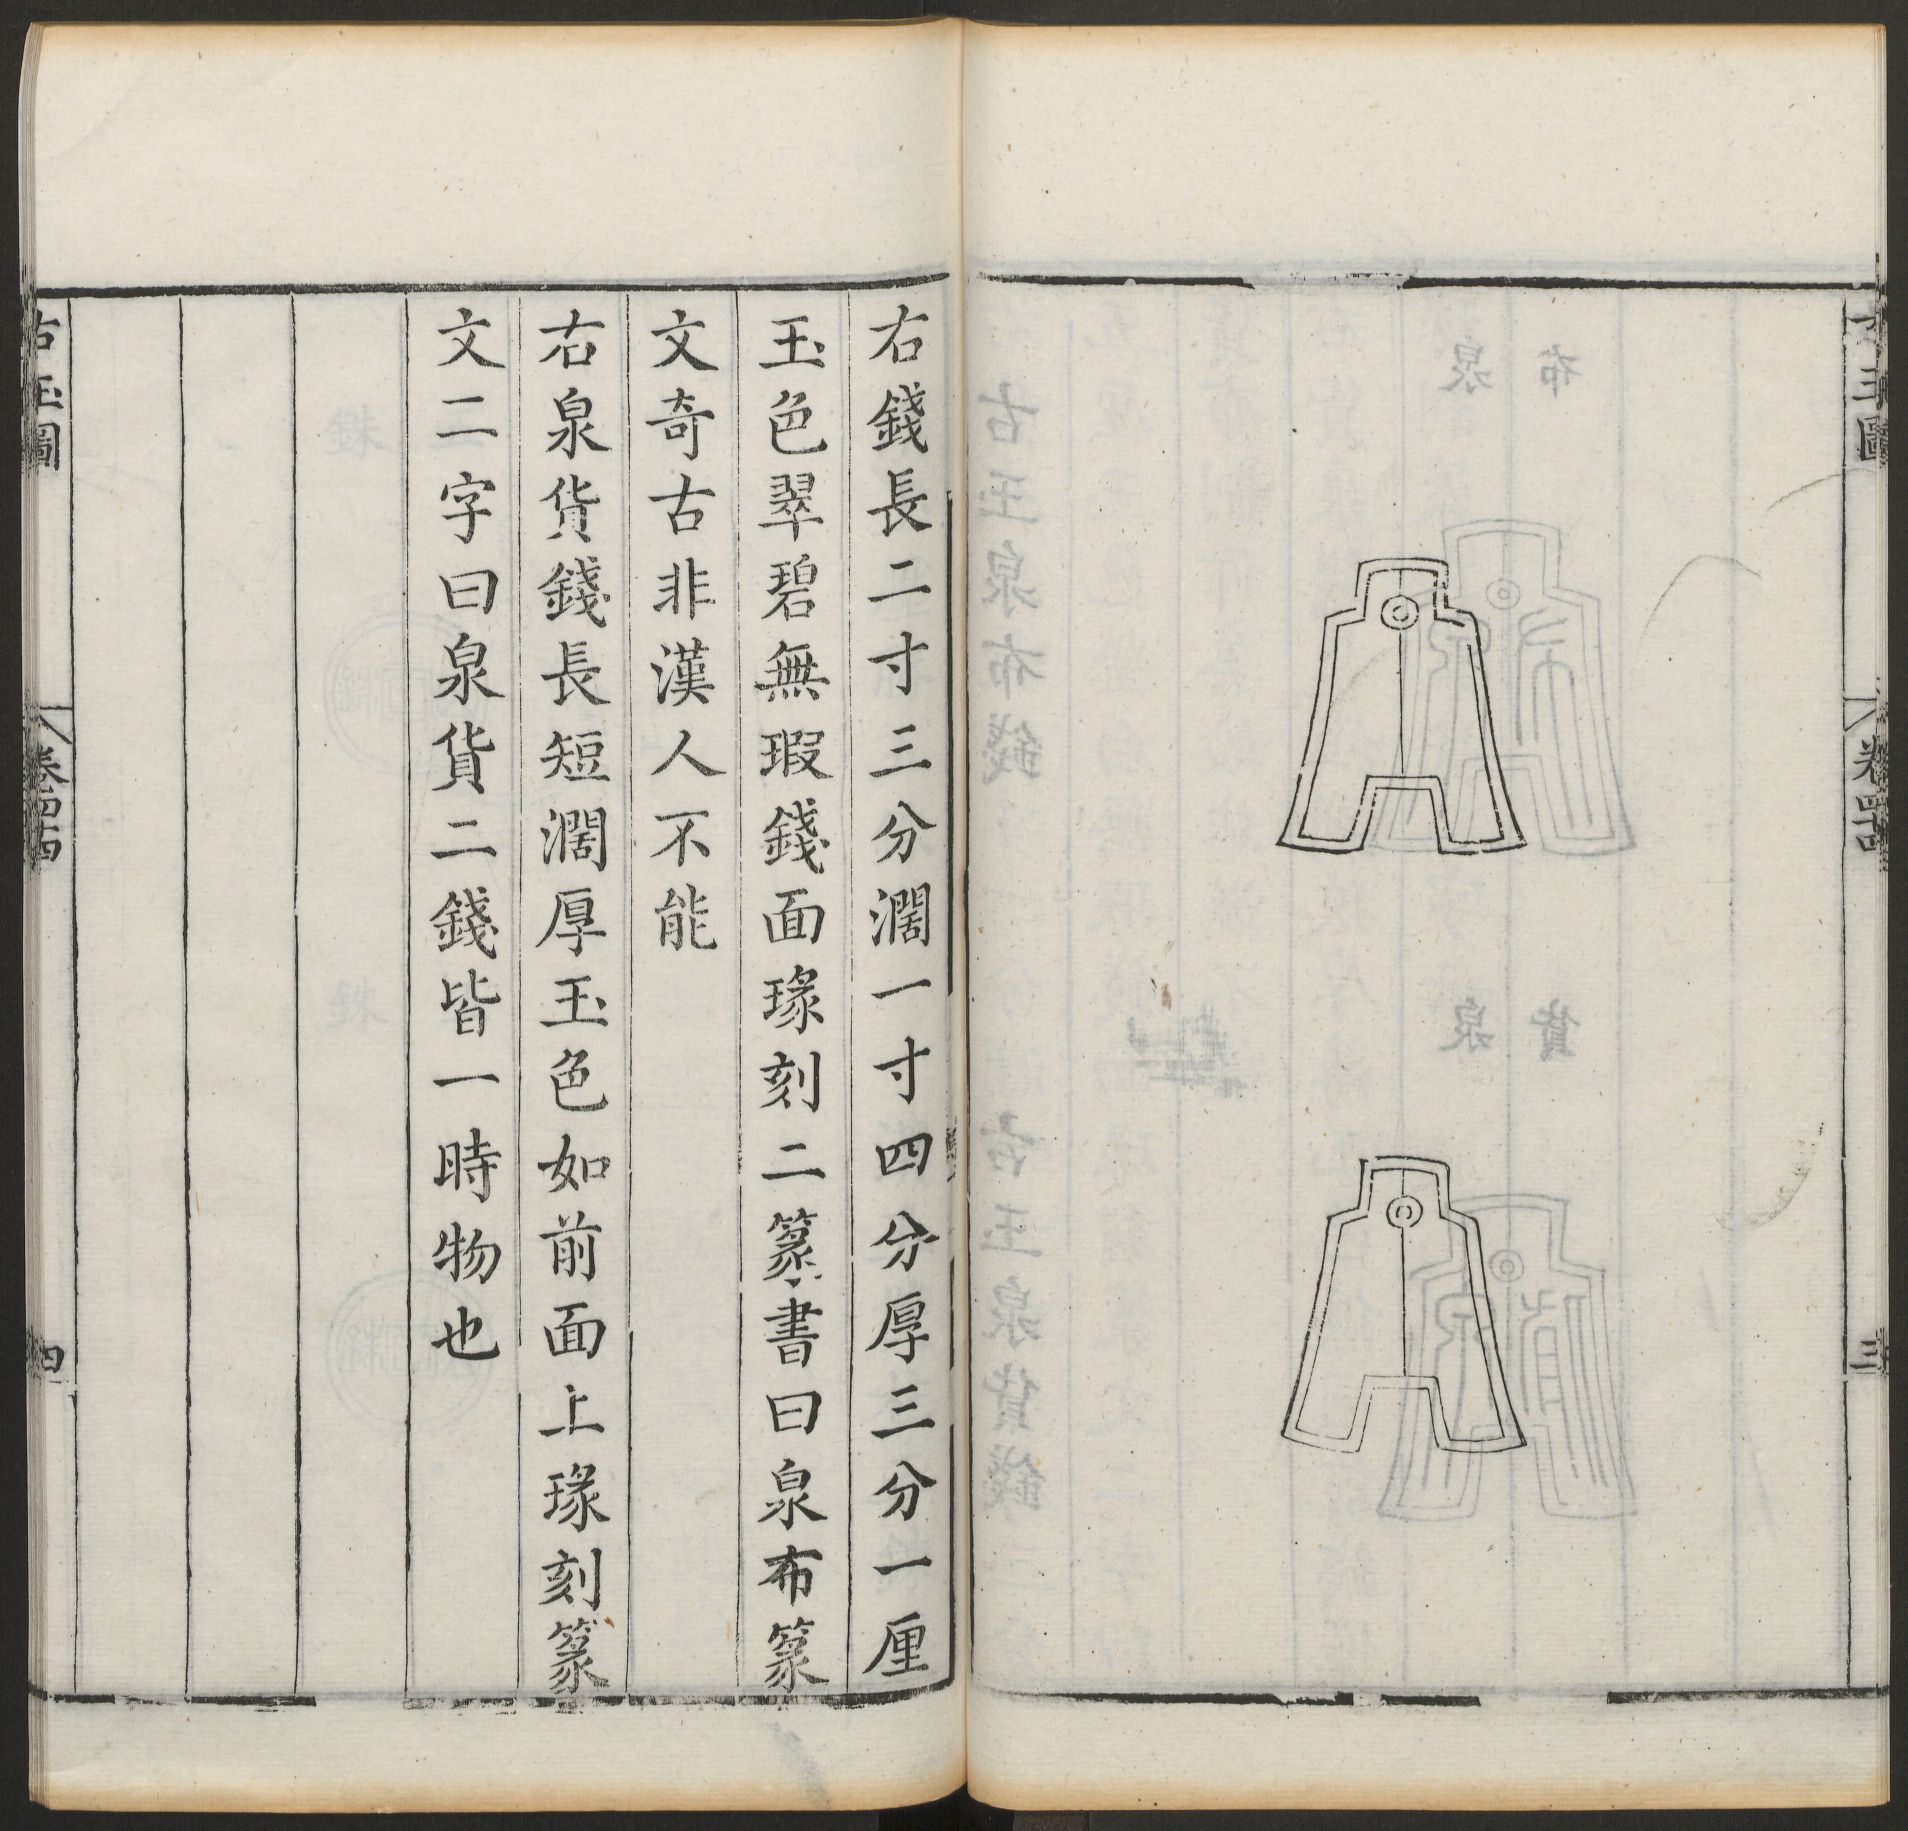 古玉圖
三
右錢長二寸三分濶一寸四分厚三分一厘
玉色翠碧無瑕錢面瑑刻二篆書曰泉布篆
文奇古非漢人不能
右泉貨錢長短濶厚玉色如前面上瑑刻篆
文二字曰泉貨二錢皆一時物也
古玉圖
四